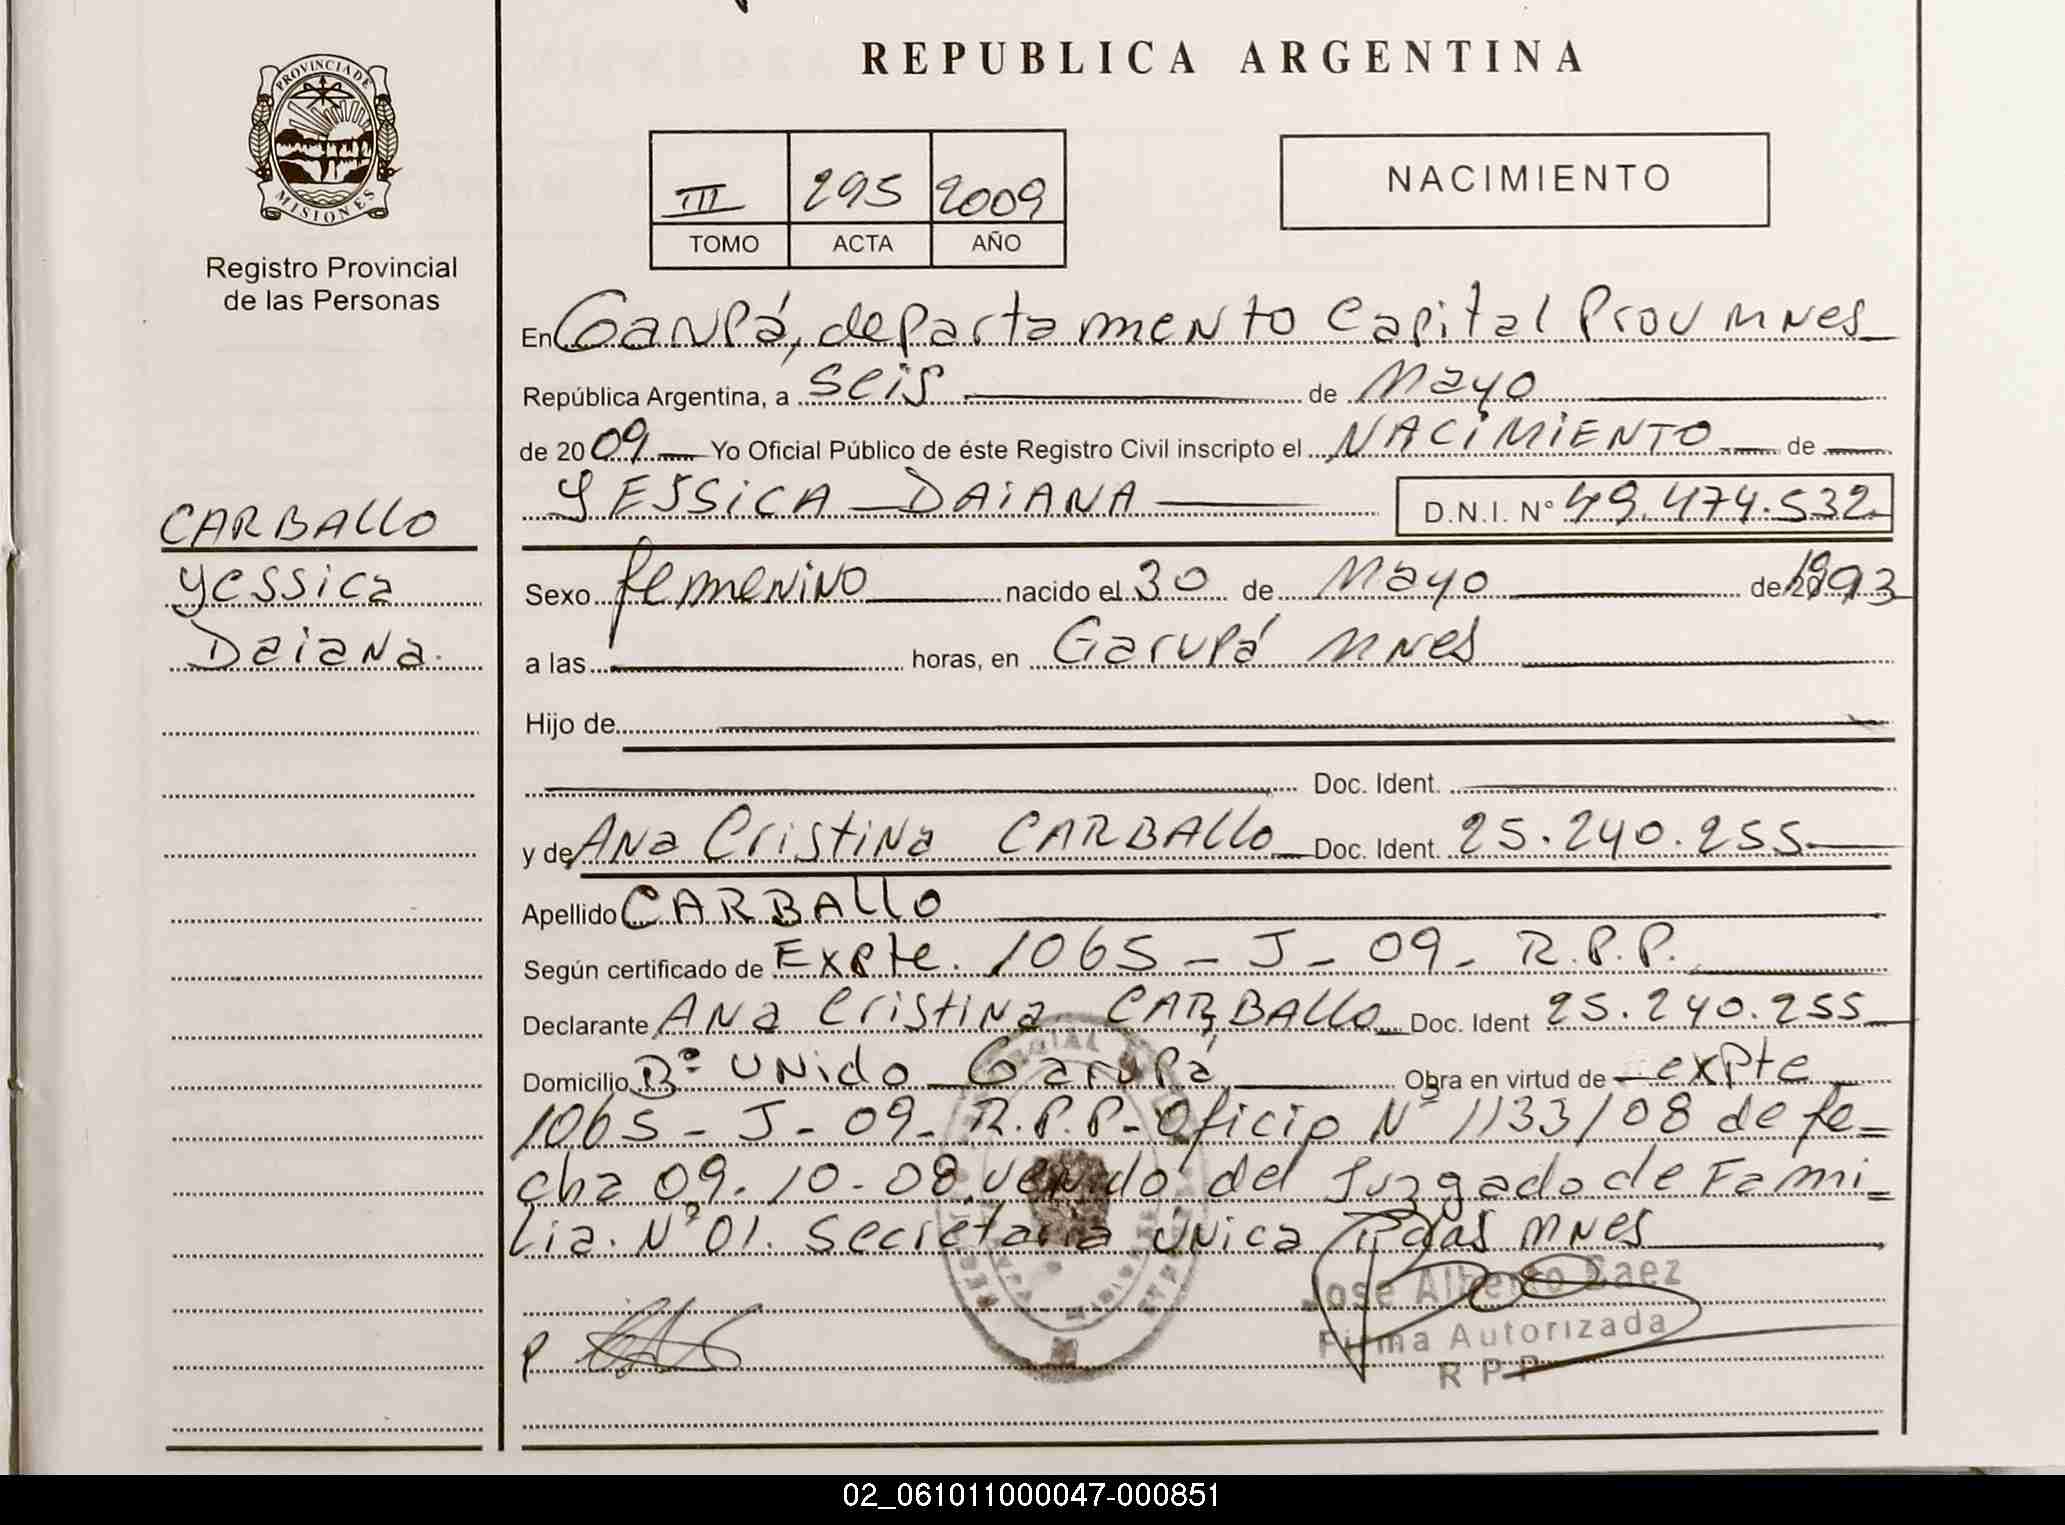 REPUBLICA ARGENTINA
PROVINCIA DE MISIONES
Registro Provincial
de las Personas
III 295 2009
TOMO ACTA AÑO
NACIMIENTO
En Garupá, departamento Capital Prov Mnes
República Argentina, a seis de Mayo
de 2009 Yo Oficial Público de éste Registro Civil inscripto el NACIMIENTO de
YESSICA DAIANA D.N.I. N° 49.474.532
CARBALLO
Yessica
Daiana.
Sexo femenino nacido el 30 de Mayo de 1993
a las horas, en Garupá Mnes
Hijo de
Doc. Ident.
y de Ana Cristina CARBALLO Doc. Ident. 25.240.255
Apellido CARBALLO
Según certificado de Expte. 1065 - J - 09 - R.P.P.
Declarante Ana Cristina CARBALLO Doc. Ident 25.240.255
Domicilio B° Unido Garupá Obra en virtud de expte
1065 - J - 09 - R.P.P. Oficio N° 1133/08 de fe=
cha 09.10.08 venido del Juzgado de Fami=
lia. N° 01. Secretaria Unica Pdas Mnes
Jose Alberto Baez
Firma Autorizada
R P P
02_061011000047-000851